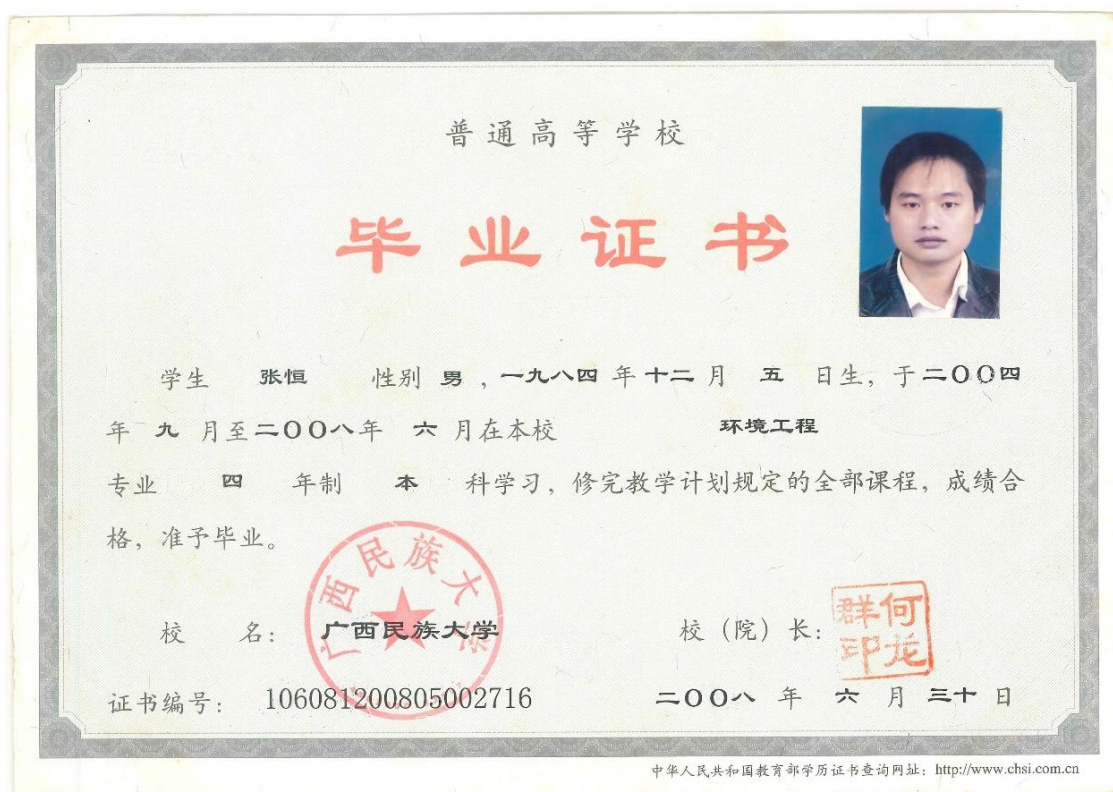 普通高等学校
毕业证书
学生 张恒 性别 男，一九八四年十二月 五 日生，于二〇〇四
年 九 月至二〇〇八年 六 月在本校 环境工程
专业 四 年制 本 科学习，修完教学计划规定的全部课程，成绩合
格，准予毕业。
广西民族大学
校 名： 广西民族大学 校（院）长：
何龙群印
证书编号： 106081200805002716 二〇〇八 年 六 月 三十 日
中华人民共和国教育部学历证书查询网址：http://www.chsi.com.cn